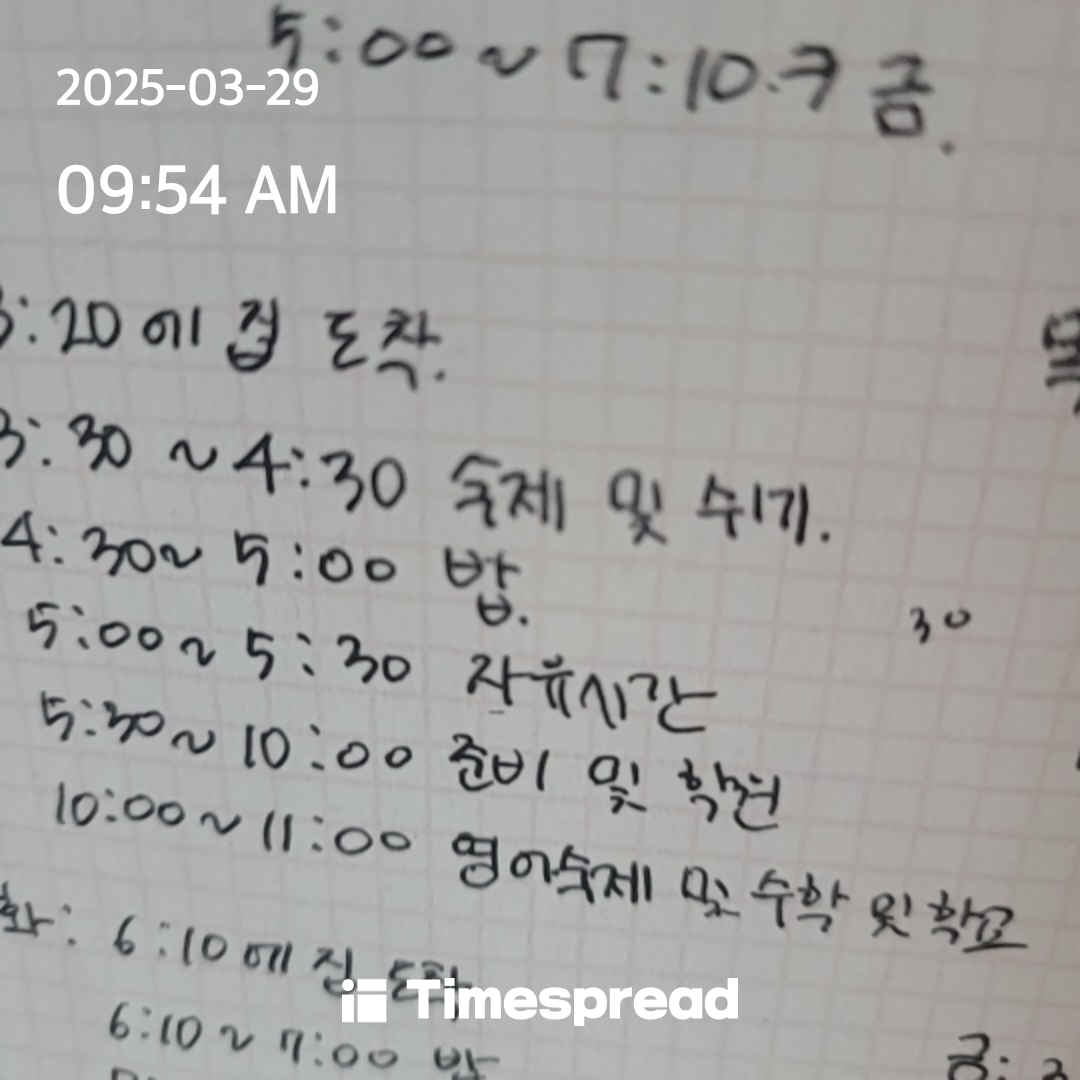 5:00~7:10
금.
2025-03-29
09:54 AM
3:20에 집 도착.
3:30~4:30 숙제 및 수기.
4:30~5:00 밥.
30
5:00~5:30 자유시간
5:30~10:00 준비 및 학원
10:00~11:00 영어숙제 및 수학 및 학교
화: 6:10에 집 도착
Timespread
6:10~7:00 밥
금: 3